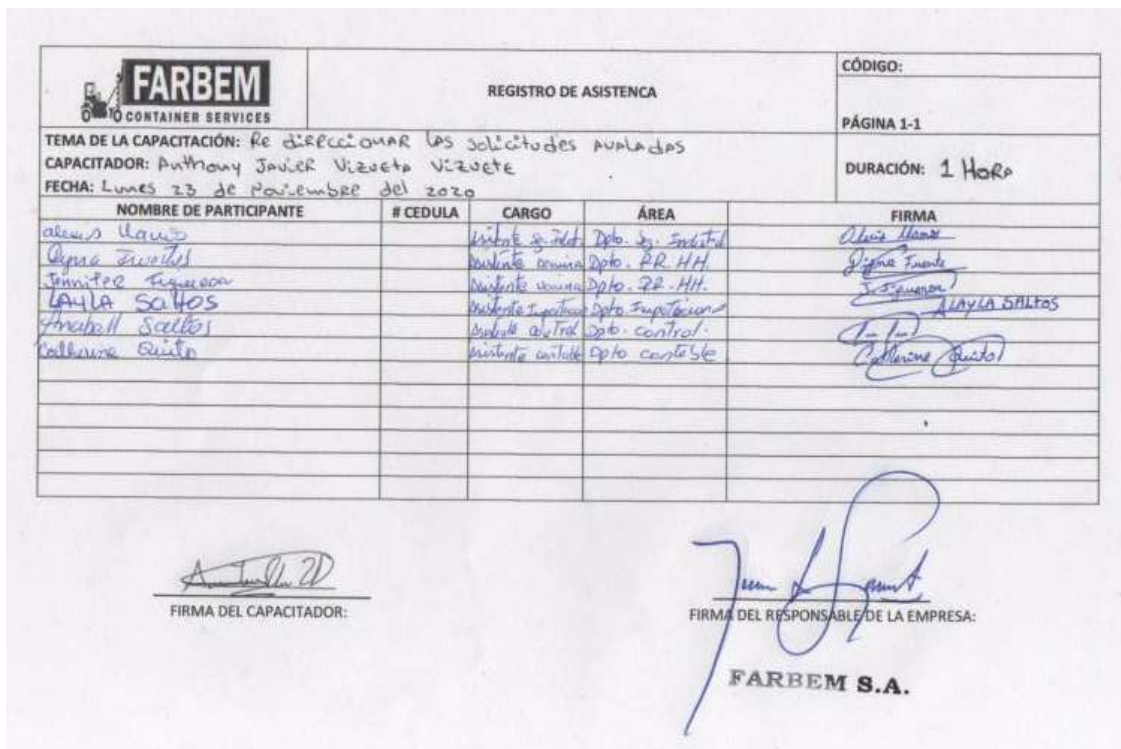 FARBEM
CONTAINER SERVICES
REGISTRO DE ASISTENCA
CÓDIGO:
PÁGINA 1-1
TEMA DE LA CAPACITACIÓN: Re direccionar las solicitudes avaladas
CAPACITADOR: Anthony Javier Vizueta Vizuete
FECHA: Lunes 23 de Noviembre del 2020
DURACIÓN: 1 Hora
NOMBRE DE PARTICIPANTE # CEDULA CARGO ÁREA FIRMA
Dpto. Sg. Industrial
Asistente nomina Dpto. RR. HH.
Jennifer Figueroa Asistente nomina Dpto. RR. HH. J. Figueroa
LAYLA SaltoS Dpto. ALAYLA SALTOS
Anabell Saltos Asistente control Dpto. control.
Catherine Quito Asistente contable Dpto contable Catherine Quito
FIRMA DEL CAPACITADOR:
FIRMA DEL RESPONSABLE DE LA EMPRESA:
FARBEM S.A.